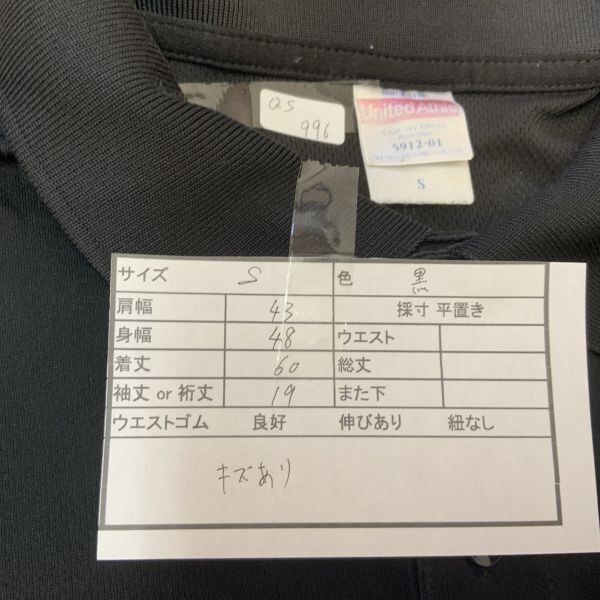 QS
996
United Athle
5912-01
S
サイズ S 色 黒
肩幅 43 採寸 平置き
身幅 48 ウエスト
着丈 60 総丈
袖丈 or 裄丈 19 また下
ウエストゴム 良好 伸びあり 紐なし
キズあり